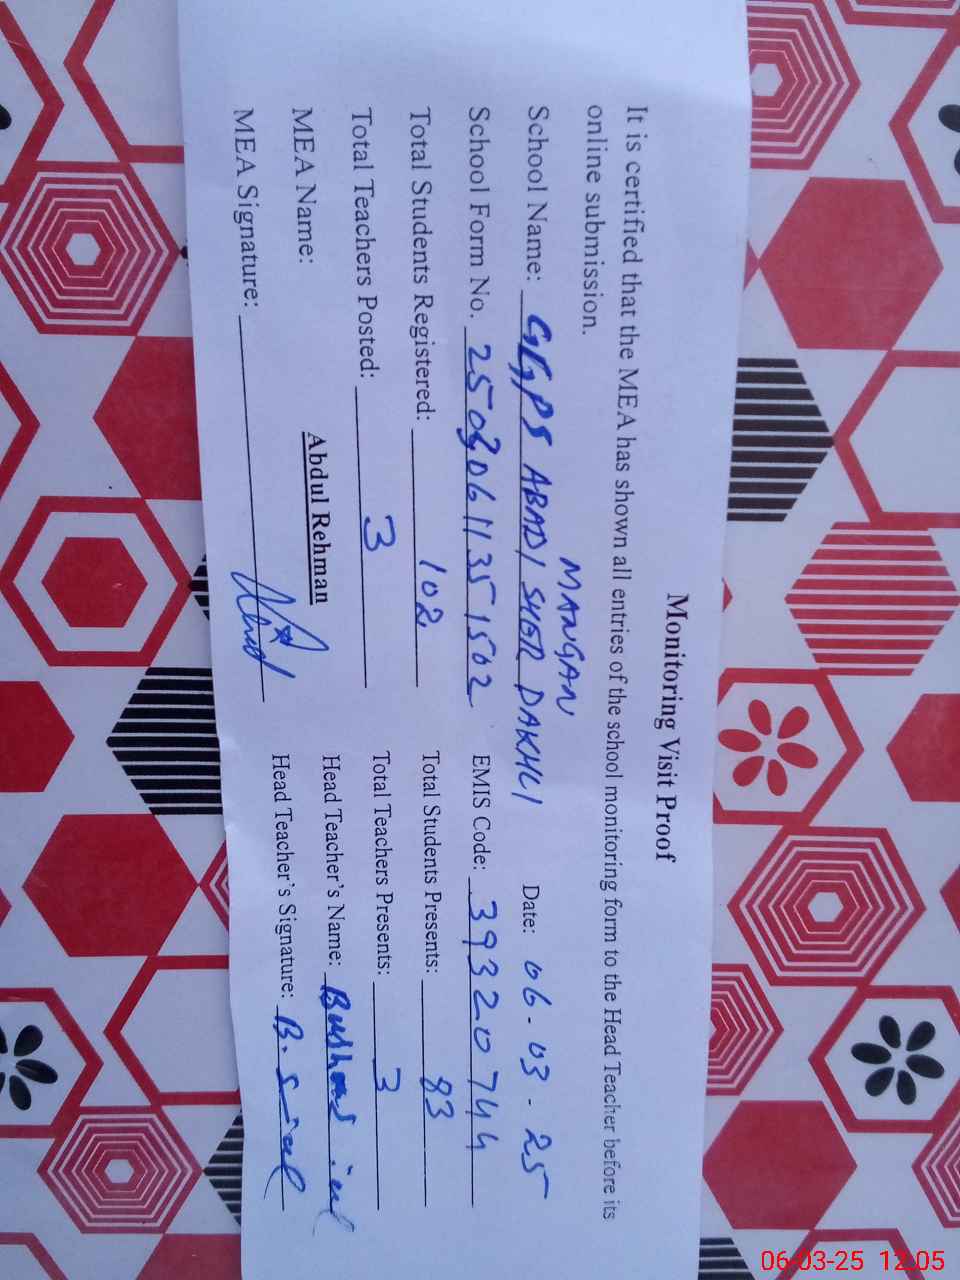 Monitoring Visit Proof
It is certified that the MEA has shown all entries of the school monitoring form to the Head Teacher before its
online submission.
MANGAN
School Name: GGPS ABADI SHER DAKHLI Date: 06-03-25
School Form No. 25030611351502 EMIS Code: 39320744
Total Students Registered: 102 Total Students Presents: 83
Total Teachers Posted: 3 Total Teachers Presents: 3
MEA Name: Abdul Rehman Head Teacher's Name: Bushra
MEA Signature: Head Teacher's Signature: B.
06-03-25 12:05